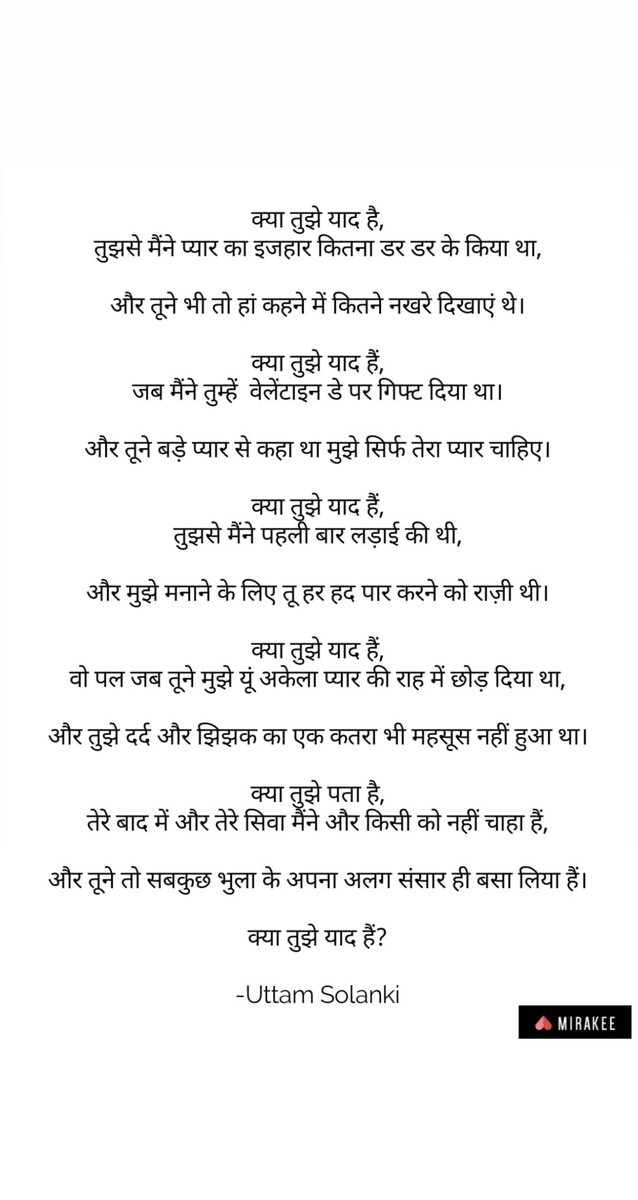 क्या तुझे याद है,
तुझसे मैंने प्यार का इजहार कितना डर डर के किया था,
और तूने भी तो हां कहने में कितने नखरे दिखाएं थे।
क्या तुझे याद हैं,
जब मैंने तुम्हें वेलेंटाइन डे पर गिफ्ट दिया था।
और तूने बड़े प्यार से कहा था मुझे सिर्फ तेरा प्यार चाहिए।
क्या तुझे याद हैं,
तुझसे मैंने पहली बार लड़ाई की थी,
और मुझे मनाने के लिए तू हर हद पार करने को राज़ी थी।
क्या तुझे याद हैं,
वो पल जब तूने मुझे यूं अकेला प्यार की राह में छोड़ दिया था,
और तुझे दर्द और झिझक का एक कतरा भी महसूस नहीं हुआ था।
क्या तुझे पता है,
तेरे बाद में और तेरे सिवा मैंने और किसी को नहीं चाहा हैं,
और तूने तो सबकुछ भुला के अपना अलग संसार ही बसा लिया हैं।
क्या तुझे याद हैं?
-Uttam Solanki
MIRAKEE